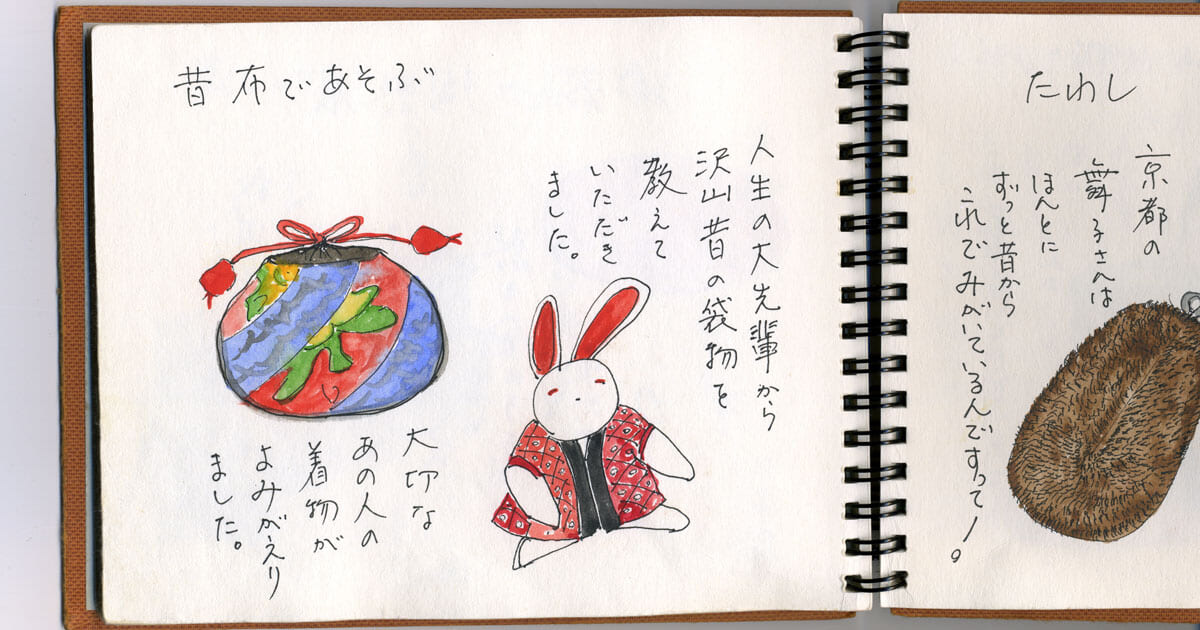 昔布であそぶ
人生の大先輩から
沢山昔の袋物を
教えて
いただき
ました。
大切な
あの人の
着物が
よみがえり
ました。
たわし
京都の
舞子さんは
ほんとに
ずっと昔から
これでみがいているんですって!。